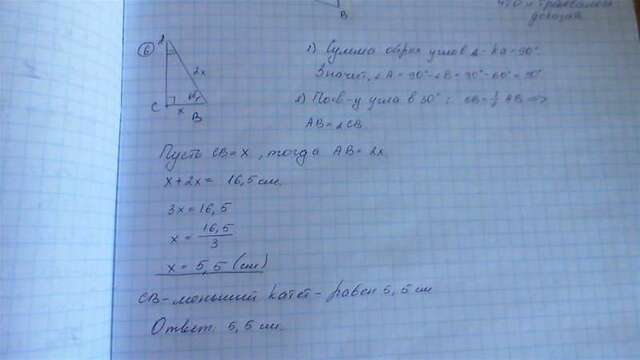 В
доказат
6
А
1) Сумма острых углов △-ка = 90°
2x
Значит, ∠A = 90° - ∠B = 90° - 60° = 30°
C
x
B
2) По св-у угла в 30°: CB = ½ AB =>
AB = 2CB
Пусть CB = x, тогда AB = 2x
x + 2x = 16,5 см.
3x = 16,5
x = 16,5/3
x = 5,5 (см)
CB - меньший катет - равен 5,5 см
Ответ: 5,5 см.